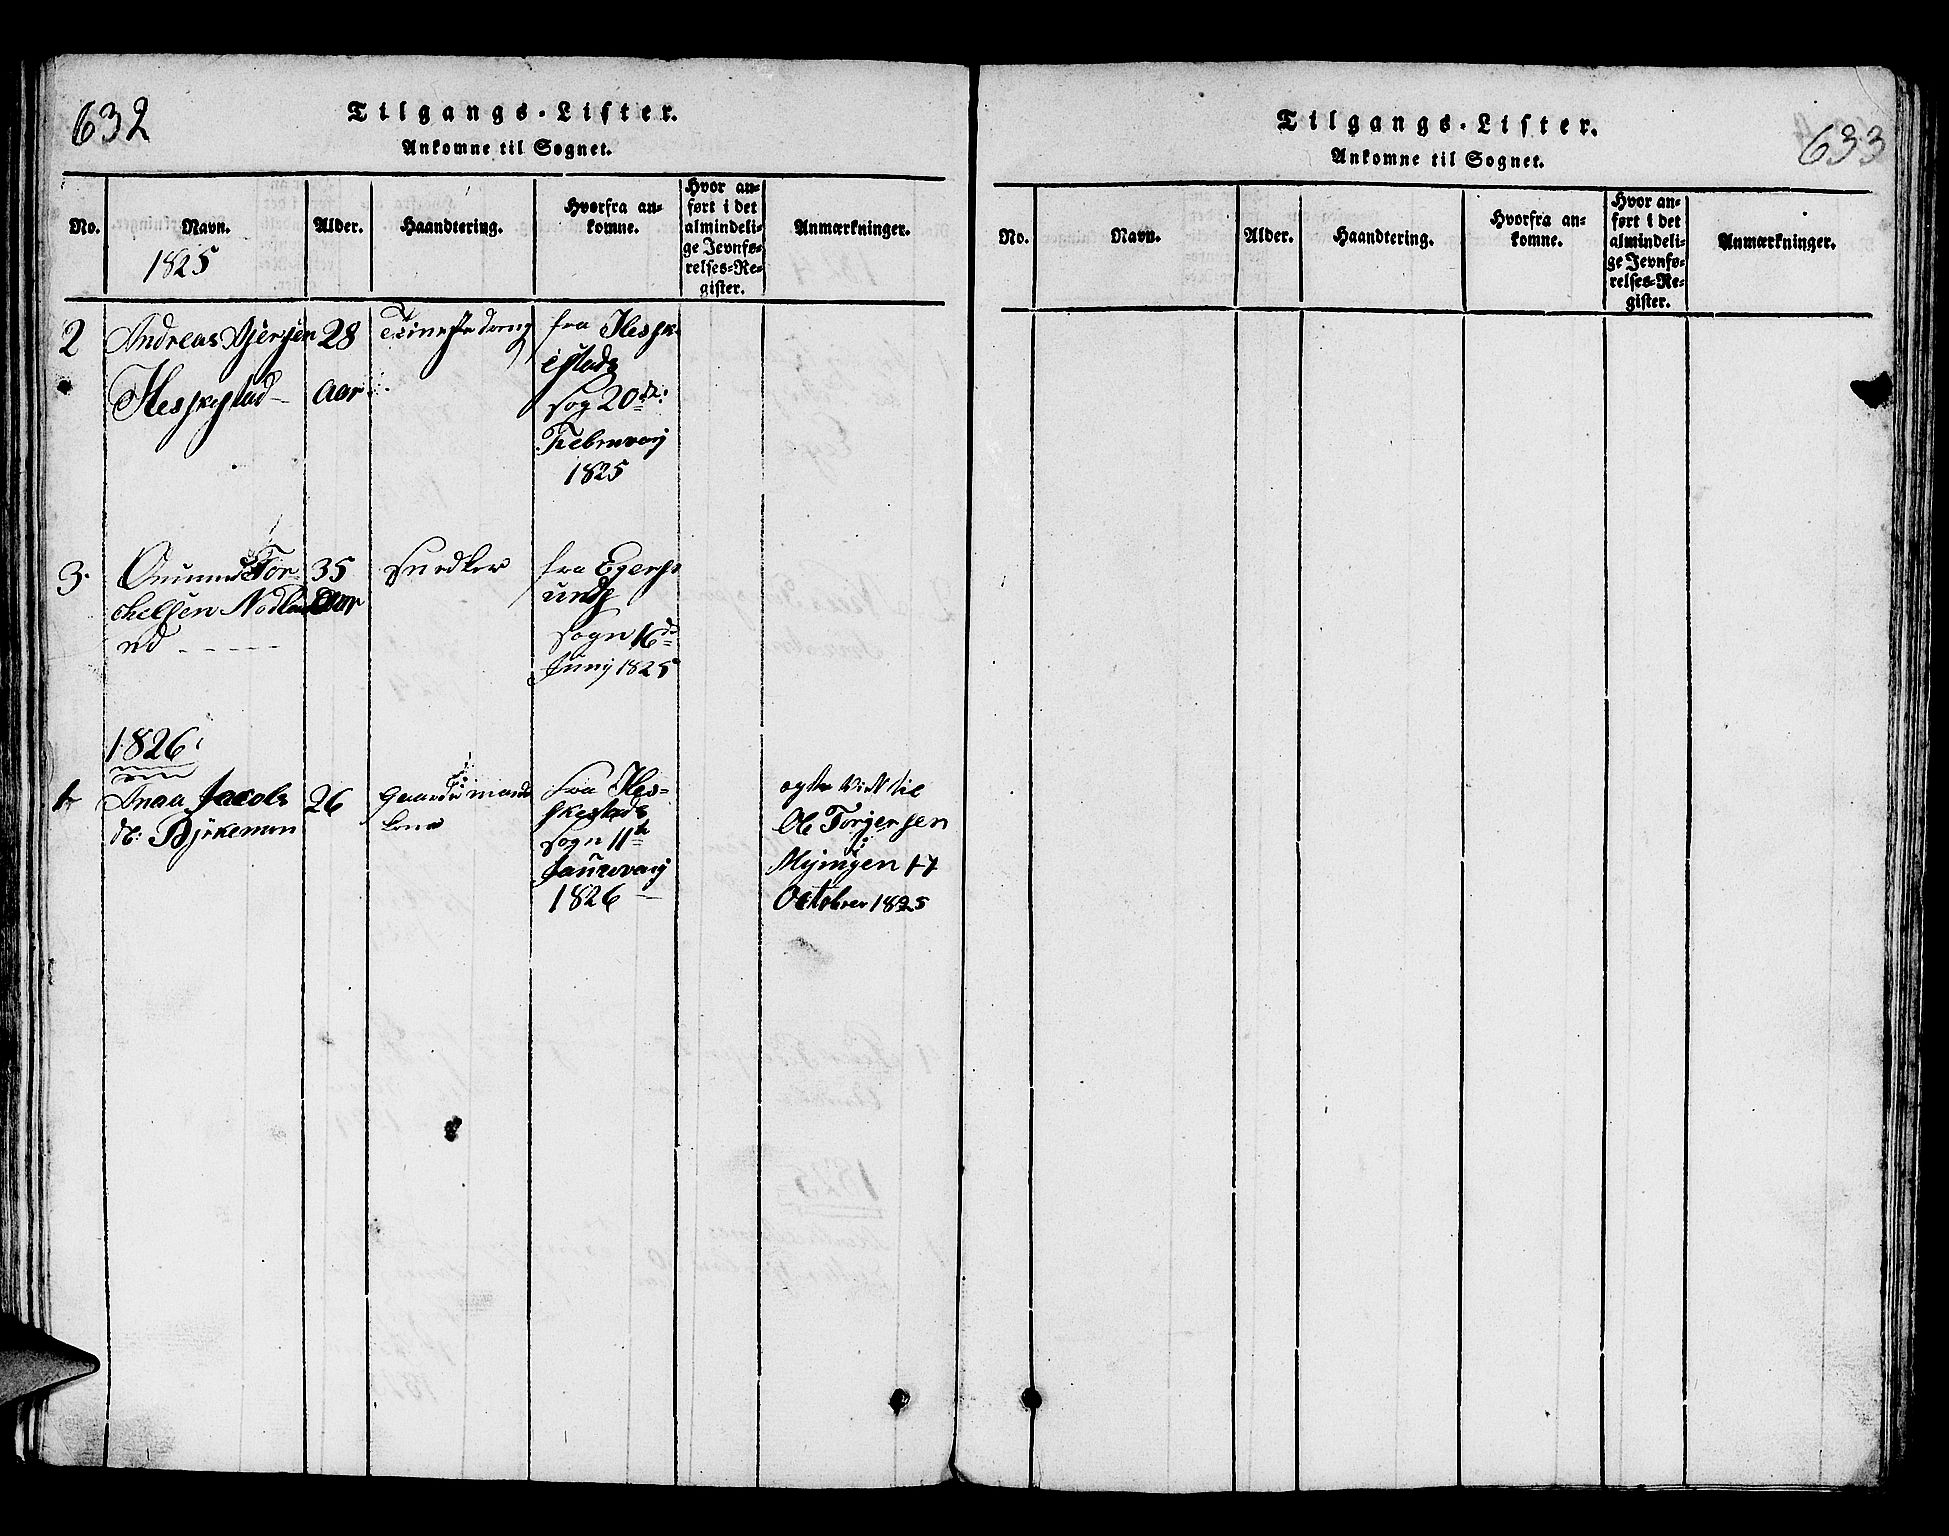 632
Tilgangs-Lister.
Ankomne til Sognet.
No.
Navn.
1825
Alder.
Haandtering.
Hvorfra an-
komne.
Hvor an-
ført i det
almindeli-
ge Jevnfø-
relses-Re-
gister.
Anmærkninger.
2
Andreas
Heskestad
28
Aar
fra Heske
estads
sog 20de
Februarij
1825
3.
Onnund Tor-
chelsen Nodla
nd
35
Aar
Snedker
fra Egers
unds
sogn 16de
Junij 1825
1826
1
Anna Jacobs
dt: Birkemon
26
Gaardmands
kone
fra Hes-
kestads
sogn 11te
Januvarij
1826
ogte Viet til
Ole Torgersen
Myingen 17
October 1825
633
Tilgangs-Lister.
Ankomne til Sognet.
No.
Navn.
Alder.
Haandtering.
Hvorfra an-
komne.
Hvor an-
ført i det
almindeli-
ge Jevnfø-
relses-Re-
gister.
Anmærkninger.